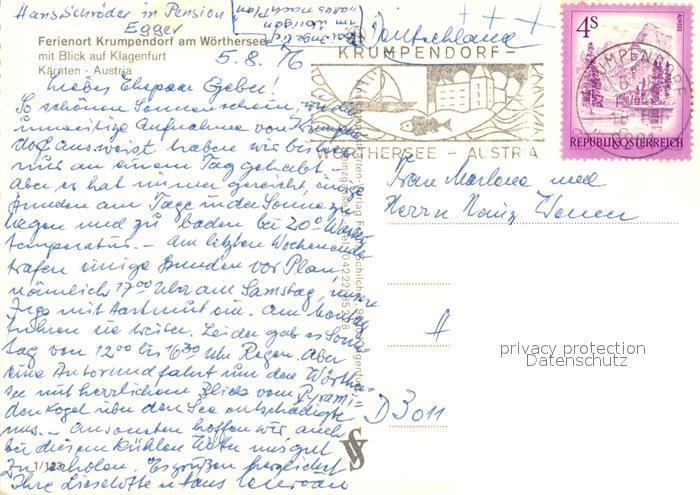 Hans Schröder in Pension
Egger
Deutschland
Ferienort Krumpendorf am Wörthersee
mit Blick auf Klagenfurt
Kärnten - Austria
5.8.76
KRUMPENDORF -
WÖRTHERSEE - AUSTRIA
4s
ALMSEE
REPUBLIK ÖSTERREICH
Liebes Ehepaar
So schönen Sonnenschein, wie die
Aufnahme von Krumpen-
dorf ausweist haben wir bisher
nur an einem Tag gehabt.
Aber es hat immer gereicht, einige
Stunden am Tage in der Sonne zu
liegen und zu baden bei 20° Wasser-
temperatur. - Am letzten Wochenende
trafen einige Stunden vor Plan,
nämlich 17⁰⁰ Uhr am Samstag, unsere
Inge mit Hartmut ein. Am Montag
fuhren sie weiter. Leider gab es Sonn-
tag von 12⁰⁰ bis 16³⁰ Uhr Regen. Aber
eine Autorundfahrt um den Wörther-
see mit herrlichem Blick vom Pyrami-
denkogel über den See entschädigte
uns. - Ansonsten hoffen wir auch
bei diesem kühlen Wetter uns gut
zu erholen. Es grüßen herzlichst
Ihre Lieselotte u Hans
Frau Marlene und
Herrn Heinz
D 3011
1/123
privacy protection
Datenschutz